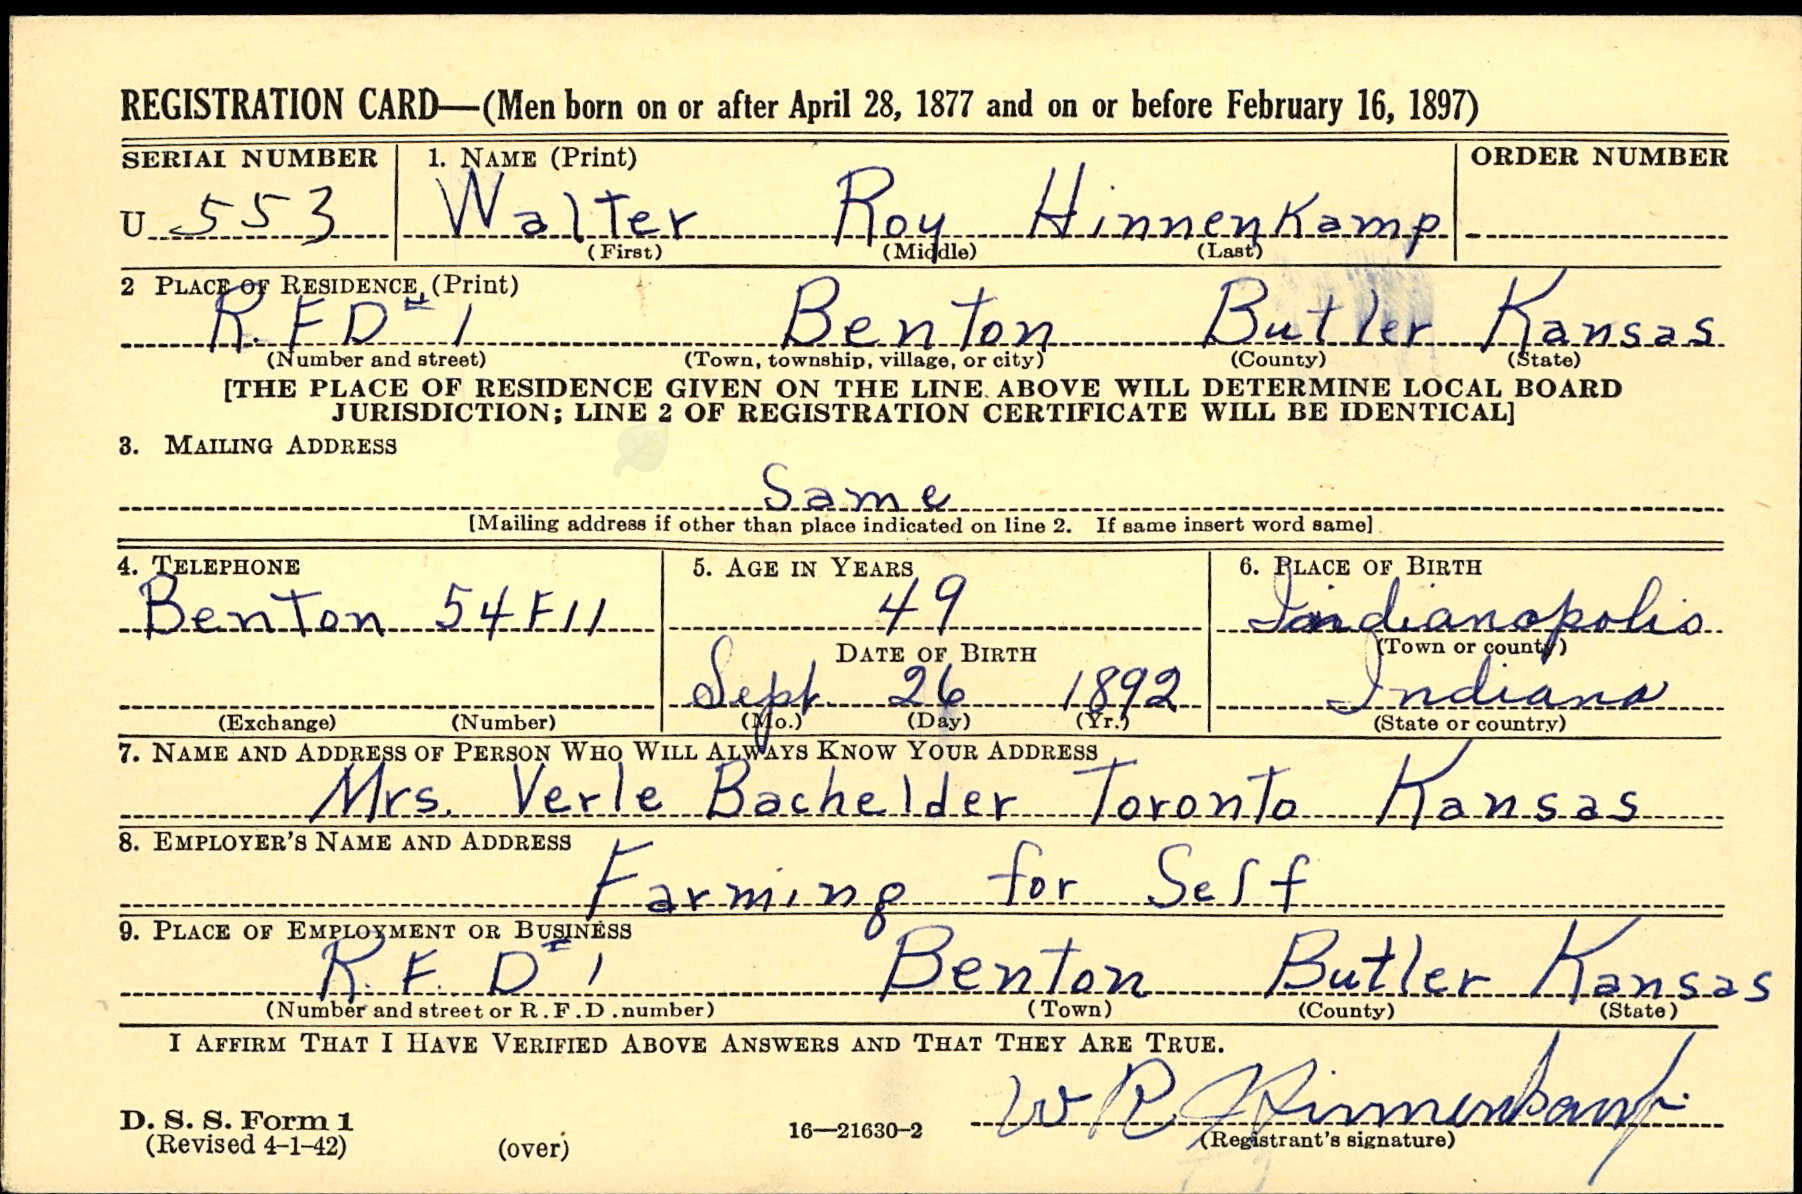 REGISTRATION CARD—(Men born on or after April 28, 1877 and on or before February 16, 1897)
SERIAL NUMBER 1. NAME (Print) ORDER NUMBER
U 553 Walter Roy Hinnenkamp
(First) (Middle) (Last)
2 PLACE OF RESIDENCE (Print)
R. F D # 1 Benton Butler Kansas
(Number and street) (Town, township, village, or city) (County) (State)
[THE PLACE OF RESIDENCE GIVEN ON THE LINE ABOVE WILL DETERMINE LOCAL BOARD
JURISDICTION; LINE 2 OF REGISTRATION CERTIFICATE WILL BE IDENTICAL]
3. MAILING ADDRESS
Same
[Mailing address if other than place indicated on line 2. If same insert word same]
4. TELEPHONE 5. AGE IN YEARS 6. PLACE OF BIRTH
Benton 54F11 49 Indianapolis
DATE OF BIRTH (Town or county)
Sept. 26 1892 Indiana
(Exchange) (Number) (Mo.) (Day) (Yr.) (State or country)
7. NAME AND ADDRESS OF PERSON WHO WILL ALWAYS KNOW YOUR ADDRESS
Mrs. Verle Bachelder Toronto Kansas
8. EMPLOYER'S NAME AND ADDRESS
Farming for Self
9. PLACE OF EMPLOYMENT OR BUSINESS
R. F. D # 1 Benton Butler Kansas
(Number and street or R. F. D. number) (Town) (County) (State)
I AFFIRM THAT I HAVE VERIFIED ABOVE ANSWERS AND THAT THEY ARE TRUE.
W R Hinnenkamp
D. S. S. Form 1
(Revised 4-1-42) (over) 16—21630-2 (Registrant's signature)